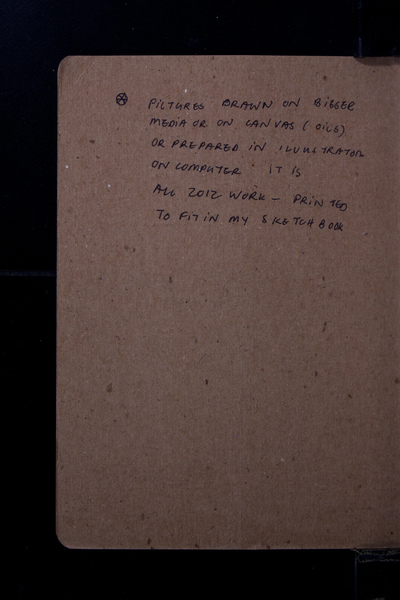 PICTURES DRAWN ON BIGGER
MEDIA OR ON CANVAS (OILS)
OR PREPARED IN ILLUSTRATOR
ON COMPUTER IT IS
ALL 2012 WORK – PRINTED
TO FIT IN MY SKETCHBOOK